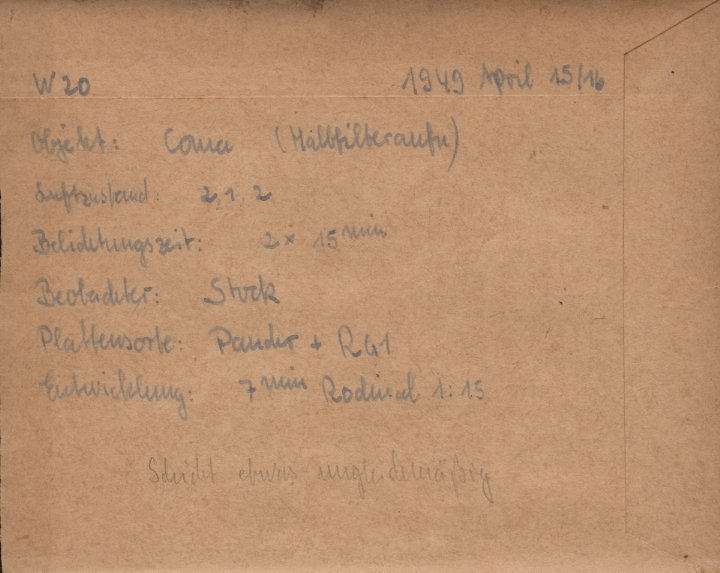 W 20 1949 April 15/16
Objekt: Coma (Halbfilteraufn)
Luftzustand: 2, 1, 2
Belichtungszeit: 2 × 15 min
Beobachter: Stock
Plattensorte: Panchr + RG1
Entwicklung: 7 min Rodinal 1:15
Schicht etwas ungleichmäßig